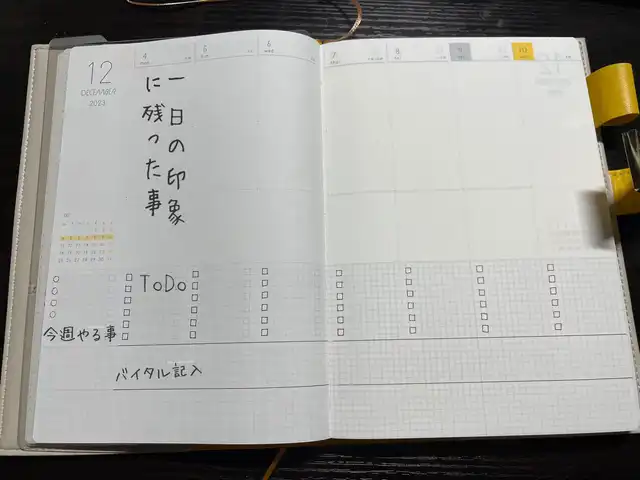 12
DECEMBER
2023
4
5
6
7
8
9
10
一日の印象
に残った事
ToDo
今週やる事
バイタル記入